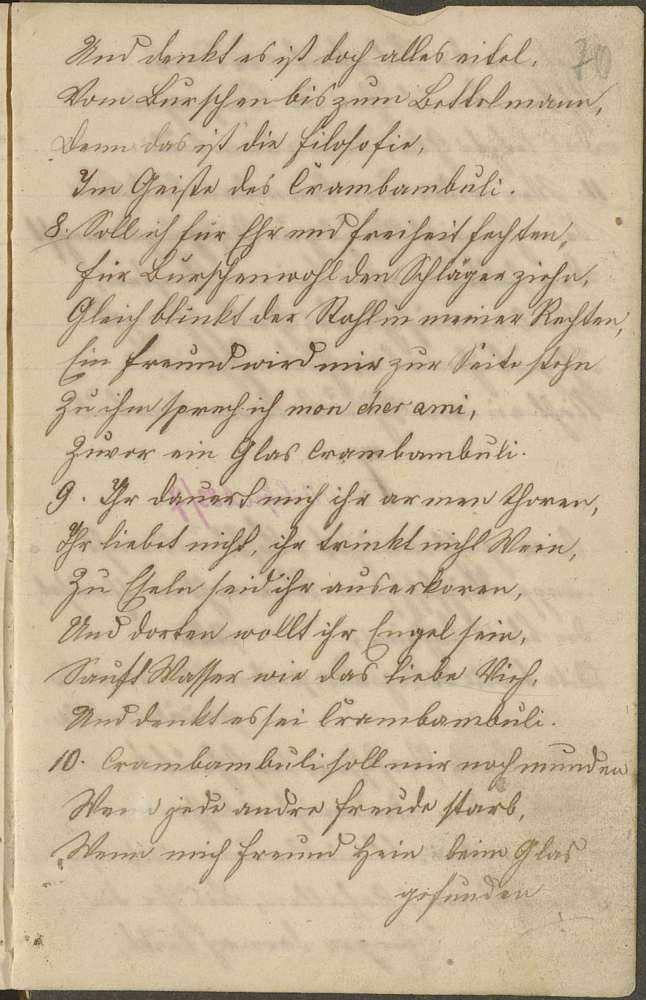 70
Und denkt es ist doch alles eitel,
Vom Burschen bis zum Bettelmann,
Denn das ist die Filosofie,
Im Geiste des Crambambuli.
8. Soll ich für Ehr und Freiheit fechten,
Für Burschenwohl den Schläger ziehn,
Gleich blinkt der Stahl in meiner Rechten,
Ein Freund wird mir zur Seite stehn
Zu ihm sprech ich mon cher ami,
Zuvor ein Glas Crambambuli.
9. Ihr dauert mich ihr armen Thoren,
Ihr liebet nicht, ihr trinkt nicht Wein,
Zu Eseln seid ihr auserkoren,
Und dorten wollt ihr Engel sein,
Sauft Wasser wie das liebe Vieh,
Und denkt es sei Crambambuli.
10. Crambambuli soll mir noch munden
Wenn jede andre Freude starb,
Wenn mich Freund Hein beim Glas
gefunden